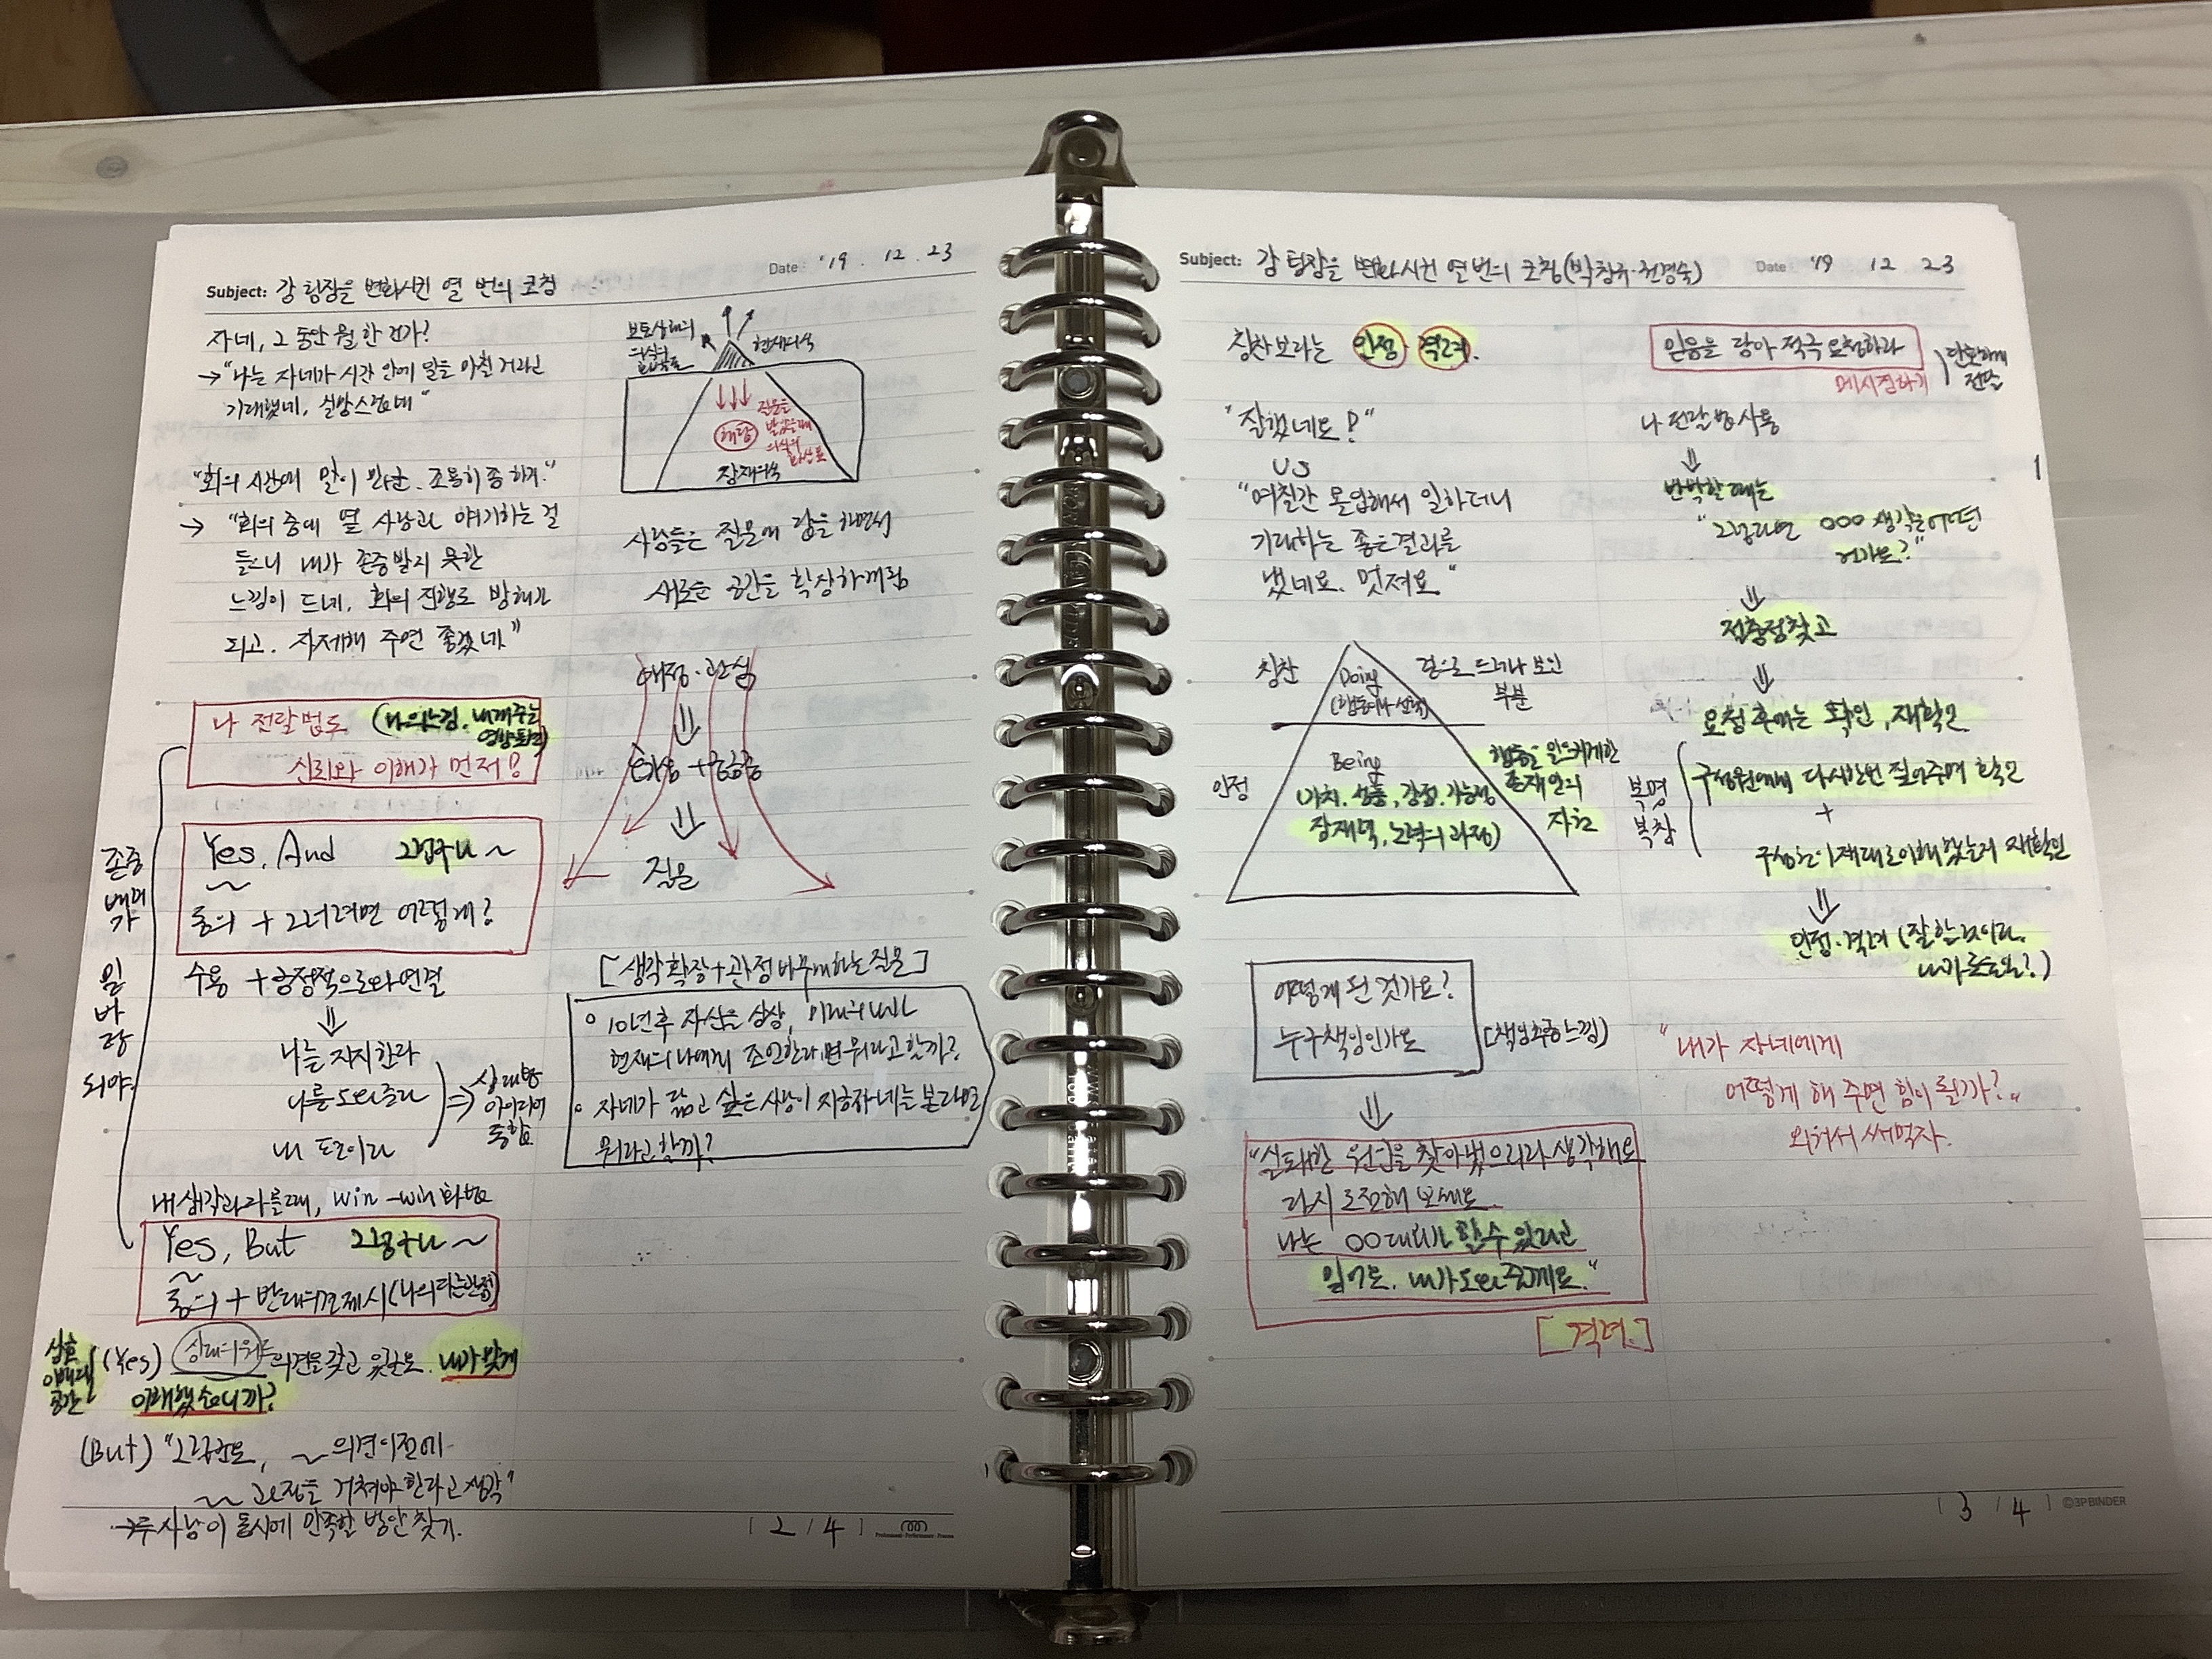 Subject: 강 팀장을 변화시킨 열 번의 코칭
Date '19. 12. 23
자네, 그 동안 뭘 한 건가?
→ "나는 자네가 시간 안에 일을 마칠 거라고
기대했네, 실망스럽네"
"회의 시간에 말이 많군. 조용히 좀 하게."
→ "회의 중에 옆 사람과 얘기하는 걸
들으니 내가 존중받지 못한
느낌이 드네, 회의 진행도 방해가
되고. 자제해 주면 좋겠네"
나 전달법도 (나의 느낌, 내게 주는
영향
신뢰와 이해가 먼저!
존중
배려
가
밑
바
탕
되야.
Yes, And 그렇구나 ~
동의 + 그러려면 어떻게?
수용 + 긍정적으로 와 연결
⇓
나는 지지한다
나를 도와준다
내 편이다
⇒ 상대방
아이디어
통합
내 생각과 다를때, win-win 화법
Yes, But 그렇구나 ~
동의 + 반대의견 제시 (나의 다른 관점)
상호
이해의
공간
(Yes) 상대의 의견을 갖고 있군요. 내가 맞게
이해했습니까?
(But) "그럼에도, ~ 의견 이전에
~ 과정을 거쳐야 한다고 생각"
→ 두 사람이 동시에 만족할 방안 찾기.
보통상태의
의식의
현재의식
↓↓↓
해답
질문을
받았을때
의식의
잠재의식
사람들은 질문에 답을 하면서
새로운 공간을 확장하게 됨
애정·관심
⇓
허용 + 존중
⇓
질문
[생각 확장 + 관점 바꾸게 하는 질문]
◦ 10년 후 자신을 상상, 미래의 내가
현재의 나에게 조언한다면 뭐라고 할까?
◦ 자네가 닮고 싶은 사람이 지금 자네를 본다면
뭐라고 할까?
| 2 / 4 |
Subject: 강 팀장을 변화시킨 열 번의 코칭 (박창규·권경숙)
Date '19 12 23
칭찬보다는 인정·격려.
"잘했네요!"
VS
"며칠간 몰입해서 일하더니
기대하는 좋은 결과를
냈네요. 멋져요"
칭찬
Doing
(행동이나 선택)
겉으로 드러나 보인
부분
인정
Being
(가치, 성품, 강점, 가능성
잠재력, 노력의 과정)
행동을 일으키게 한
존재의
자원
어떻게 된 건가요?
누구 책임인가요
[책임추궁 느낌)
⇓
"실패한 원인을 찾아냈으리라 생각해요
다시 도전해 보세요.
나는 ○○대리가 할 수 있다고
믿어요. 내가 도와 줄께요."
[격려.]
믿음을 담아 적극 요청하라
메시징하기
단호하게
전달
나 전달법 사용
⇓
반박할 때는
"그렇다면 ○○○ 생각은 어떤
건가요?"
⇓
접충점 찾고
⇓
요청 후에는 확인, 재확인
복명
복창
구성원에게 다시 한번 짚어주며 확인
+
구성원이 제대로 이해했는지 재확인
⇓
인정·격려 (잘 할 것이다.
내가 도울?)
"내가 자네에게
어떻게 해 주면 힘이 될까?"
외워서 써먹자.
| 3 / 4 | ©3P BINDER